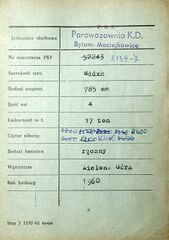 P K P
Jednostka służbowa Parowozownia K.D.
Bytom-Maciejkowice
Nr inwentarza PKP 52243 8139-7
Szerokość toru Wddxh
Rodzaj wagonu 785 mm
Ilość osi 4
Ładowność w t. 17 ton
Ciężar własny 8400
Rodzaj hamulca ręczny
Wytwórnia Zielona Góra
Rok budowy 1960